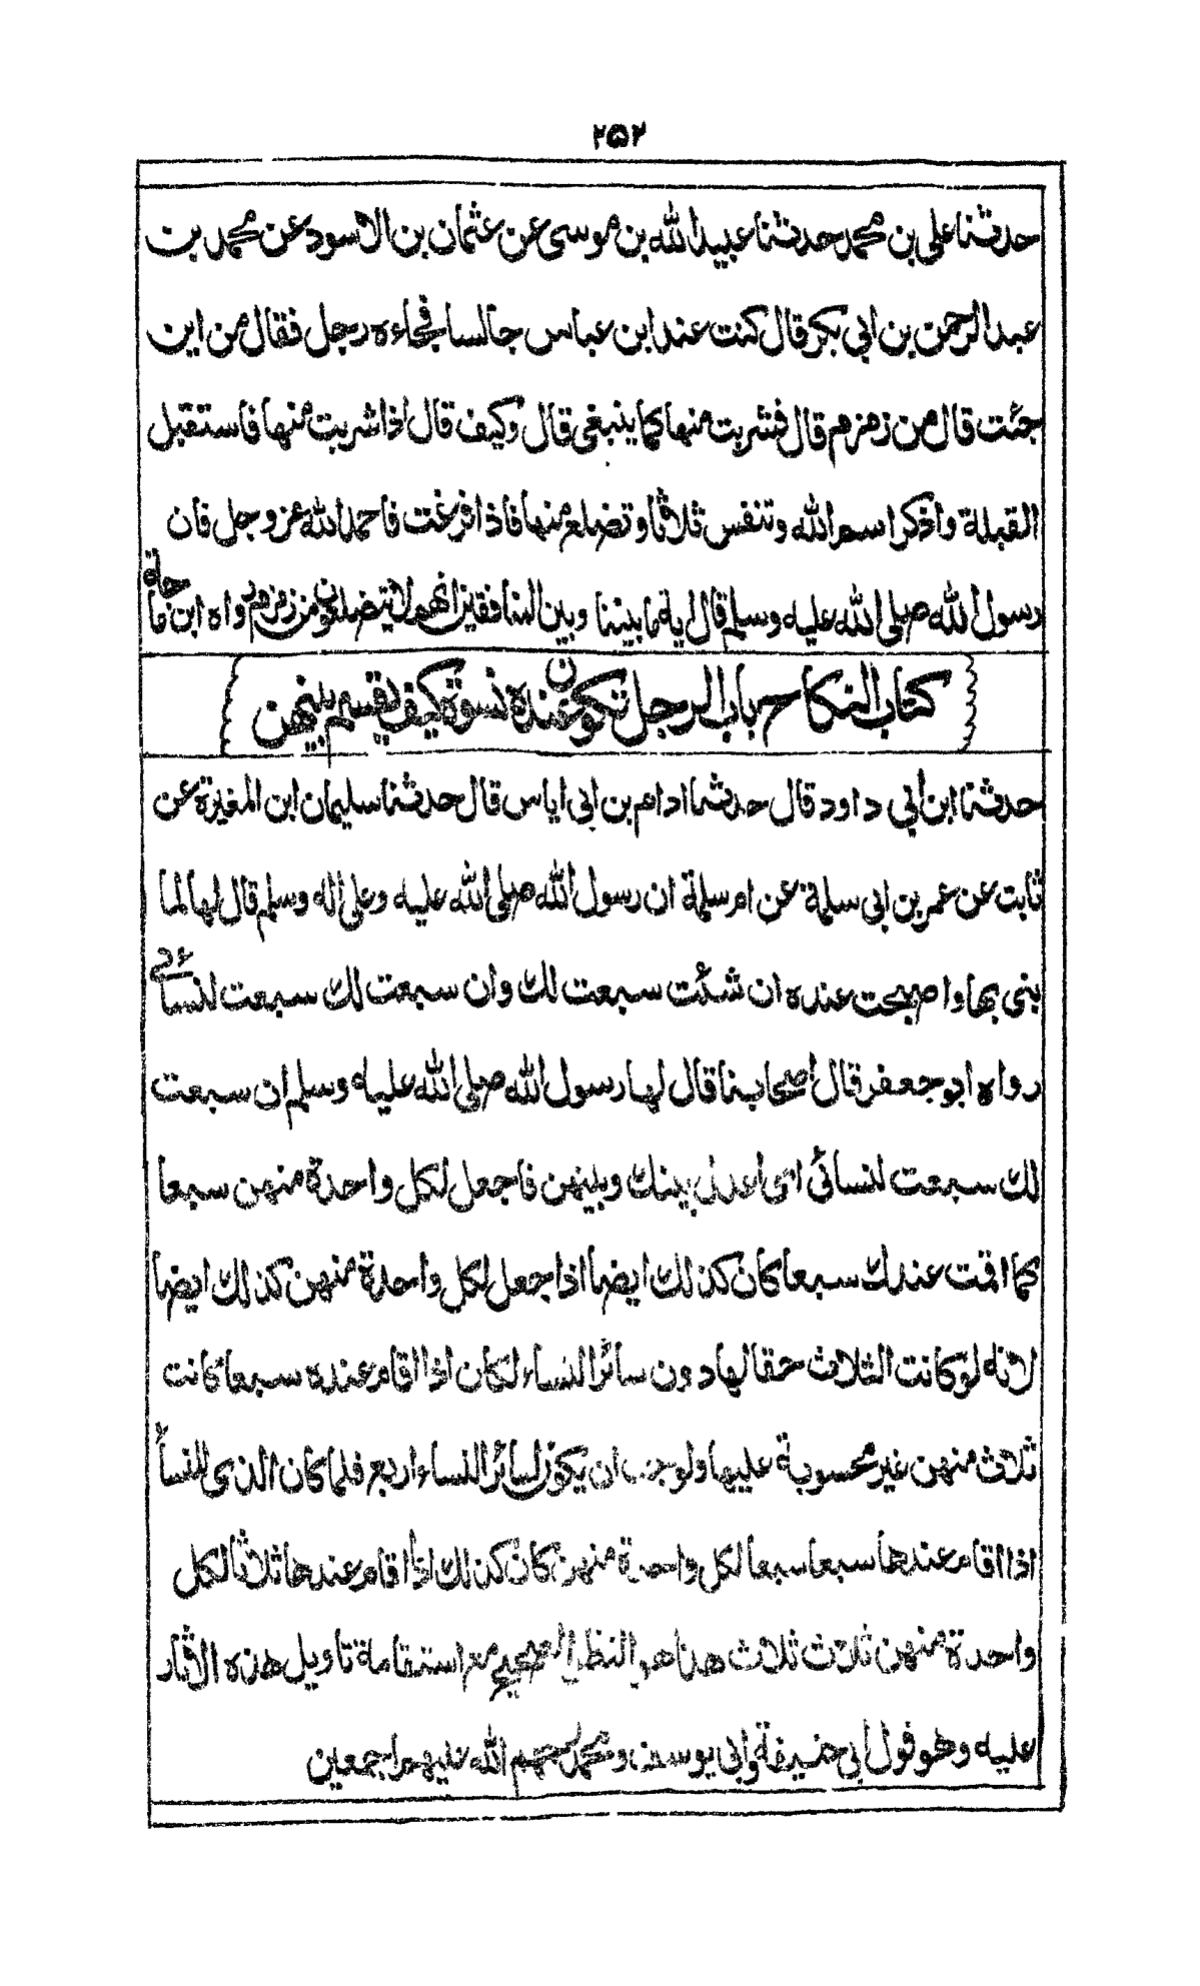 ۲۵۲
حدثنا علی بن محمد حدثنا عبید الله بن موسی عن عثمان بن الاسود عن محمد بن
عبد الرحمن بن ابی بکر قال کنت عند ابن عباس جالسا فجاءه رجل فقال من این
جئت قال من زمزم قال فشربت منها کما ینبغی قال وکیف قال اذا شربت منها فاستقبل
القبلة واذکر اسم الله وتنفس ثلاثا وتضلع منها فاذا فرغت فاحمد الله عز وجل فان
رسول الله صلی الله علیه وسلم قال ایة ما بیننا وبین المنافقین انهم لا یتضلعون من زمزم رواه ابن ماجة
کتاب النکاح باب الرجل تکون عنده نسوة کیف یقسم بینهن
حدثنا ابن أبی داود قال حدثنا ادام بن ابی ایاس قال حدثنا سلیمان ابن المغیرة عن
ثابت عن عمر بن ابی سلمة عن ام سلمة ان رسول الله صلی الله علیه وعلی اله وسلم قال لها لما
بنی بها واصبحت عنده ان شئت سبعت لك وان سبعت لك سبعت لنسائی
رواه ابو جعفر قال أصحابنا قال لها رسول الله صلی الله علیه وسلم ان سبعت
لك سبعت لنسائی ای اعدل بینك وبینهن فاجعل لکل واحدة منهن سبعا
کما اقمت عندك سبعا کان کذلك ایضا اذا جعل لکل واحدة منهن کذلك ایضا
لانه لو کانت الثلاث حقا لها دون سائر النساء لکان اذا اقام عنده سبعا کانت
ثلاث منهن غیر محسوبة علیها ولوجب ان یکون لسائر النساء اربع فلما کان الذی للنساء
اذا اقام عندها سبعا سبعا لکل واحدة منهن کان کذلك اذا اقام عندها ثلاثا لکل
واحدة منهن ثلاث ثلاث هذا هو النظر الصحیح مع استقامة تاویل هذه الاثار
علیه وهو قول ابی حنیفة وابی یوسف ومحمد رحمهم الله علیهم اجمعین